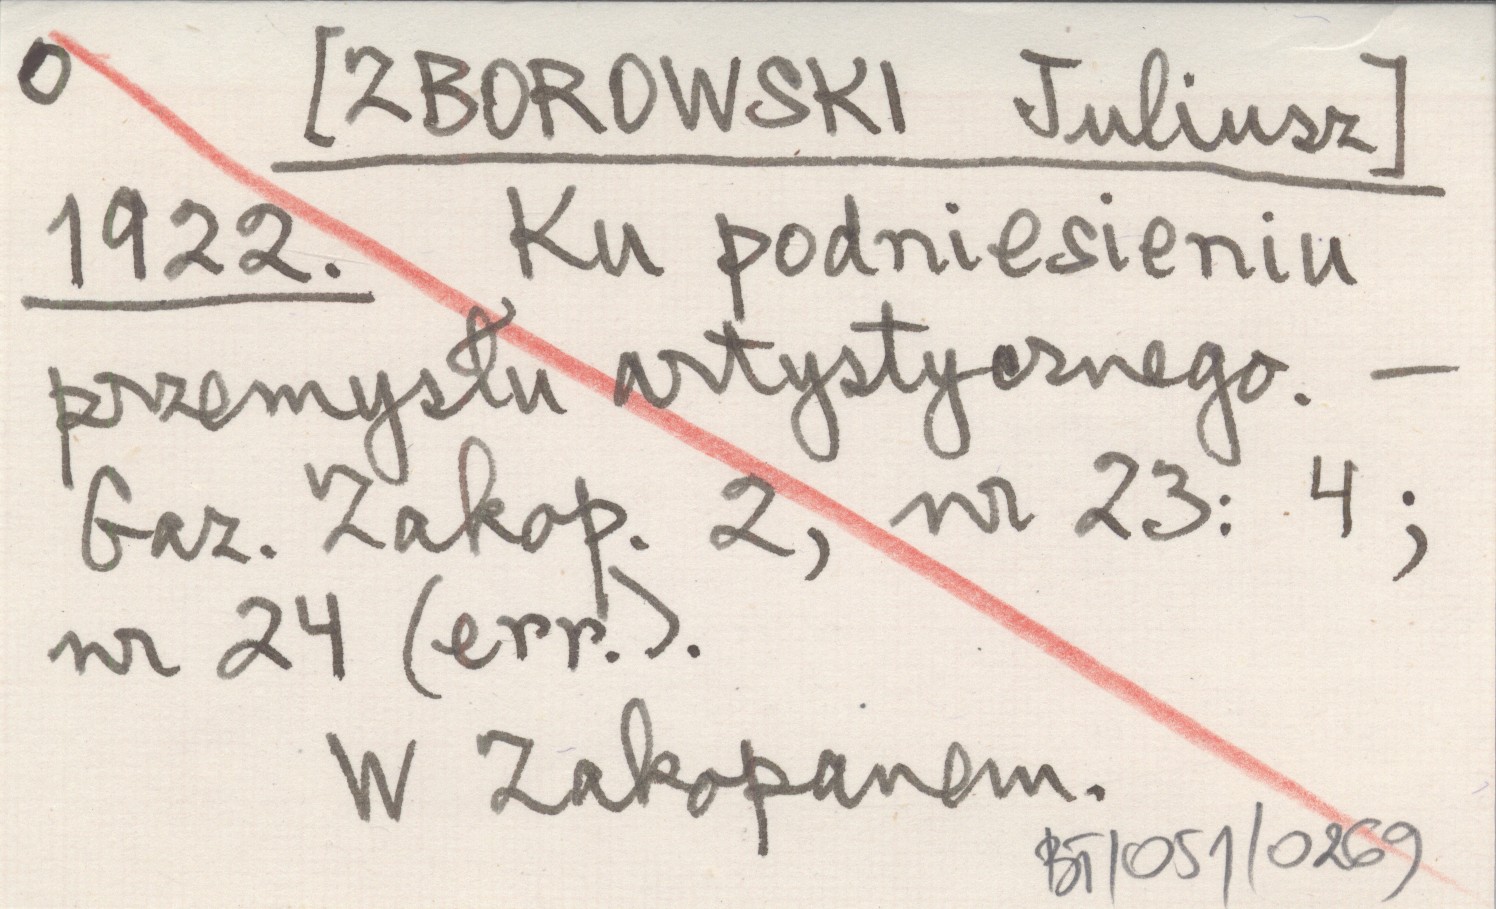 O [ZBOROWSKI Juliusz]
1922. Ku podniesieniu
przemysłu artystycznego. —
Gaz. Zakop. 2, nr 23: 4;
nr 24 (err.).
W Zakopanem.
BT/051/0269